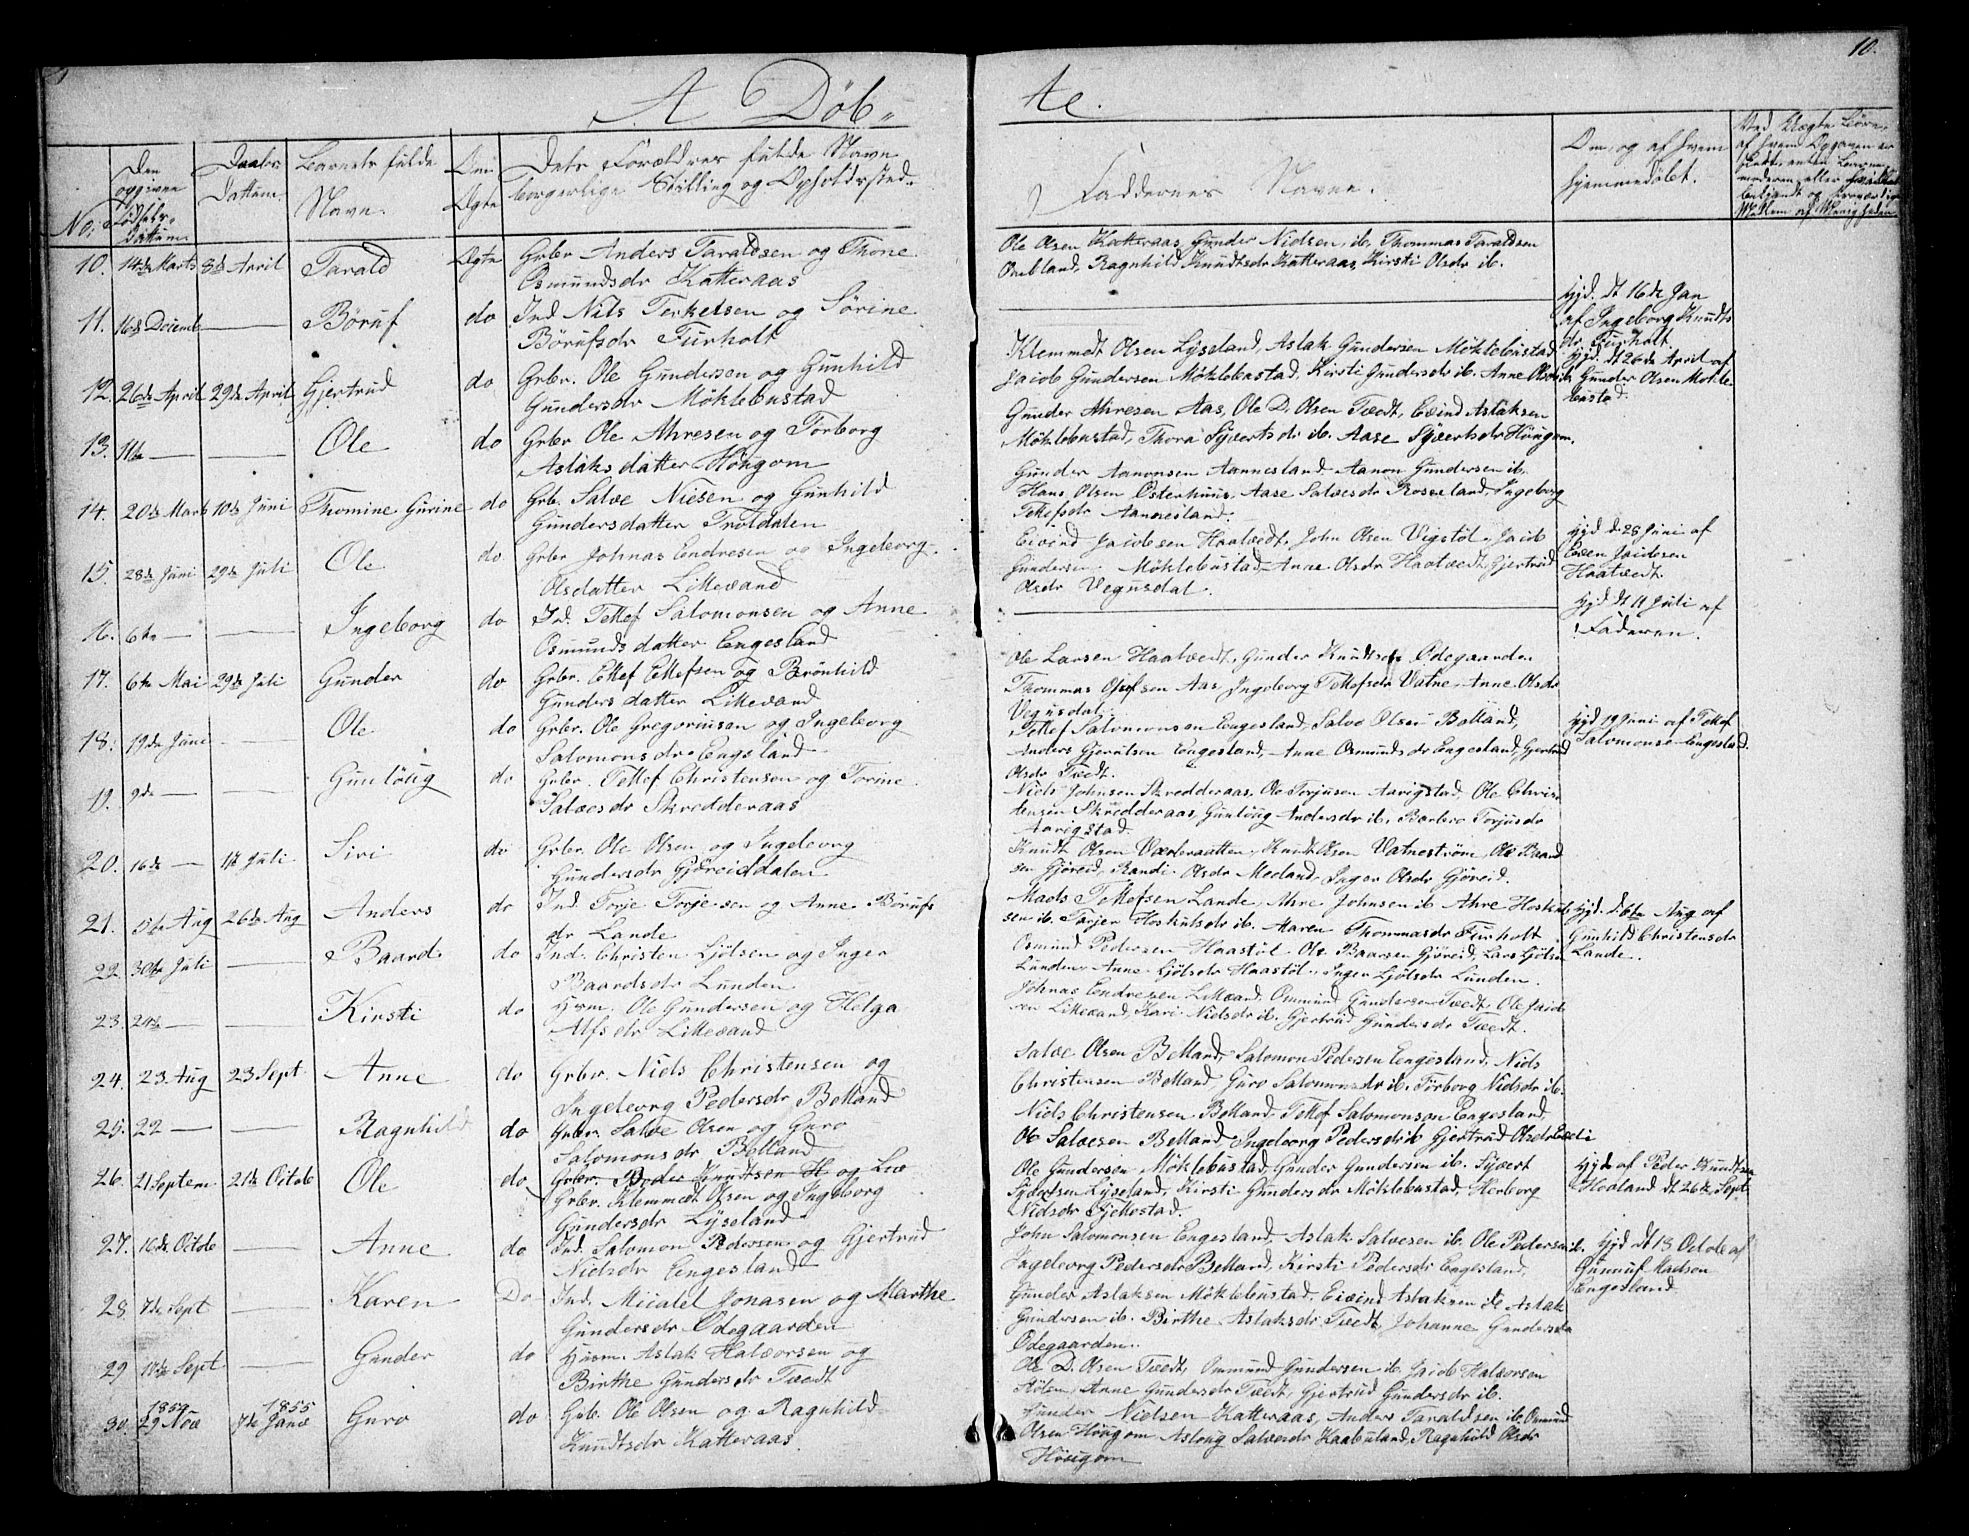 10.
A Døb-
te.
No:
Den opgivne Fødsels-Dattum
Daabs Dattum
Barnets fulde Navn.
Om Ægte
Dets Forældres fulde Navn
borgerlige Stilling og Opholdssted.
Faddernes Navne.
Om, og af hvem
hjemmedøbt.
10. 14de Marts 8de April Tarald Ægte Grbr Anders Taraldsen og Thone
Osmundsdr Katteraas
Ole Olsen Katteraas, Gunder Nielsen ib. Thommas Taraldsen
Ombland, Ragnhild Knudtsdr Katteraas, Kirsti Olsdr ib.
11. 16de Decemb — Børuf do Ind Nils Terkelsen og Sørine
Børufsdr Furholt
Hjd. dt 16de Jan
af Ingeborg Knudts
dr Furholt.
12. 26de April 29de April Gjertrud do Grbr. Ole Gundersen og Gunhild
Gundersdr Møklebustad
Klemmedt Olsen Lyseland, Aslak Gundersen Møklebustad
Jacob Gundersen Møklebustad, Kirsti Gundersdr ib. Anne Olsdr ib.
Hjd. dt 26de April af
Gunder Olsen Mokle-
bustad.
13. 11te — — Ole do Grbr Ole Ahresen og Torborg
Aslaksdatter Høugom
Gunder Ahresen Aas, Ole D. Olsen Tvedt, Eivind Aslaksen
Møklebustad, Thora Syvertsdr ib. Aase Syvertsdr Høugom.
14. 20de Marts 10de Juni Thomine Gurine do Grb. Salve Nilsen og Gunhild
Gundersdatter Troldalen
Gunder Aanonsen Aannesland. Aanon Gundersen ib.
Hans Olsen Osterhuus, Aase Salvesdr Rosseland, Ingeborg
Tellefsdr Aannesland.
15. 28de Juni 29de Juli Ole do Grbr Johnas Endresen og Ingeborg
Olsdatter Lillevand
Eivind Jacobsen Haatvedt, John Olsen Vigstøl, Jacob
Gundersen Møklebustad, Anne Olsdr Haatvedt, Gjertrud
Olsdr Vegusdal.
Hjd d. 28 Juni af
Even Jacobsen
Haatvedt.
16. 6te — — Ingeborg do Ind. Tellef Salomonsen og Anne
Osmundsdatter Engesland
Hjd dt 11 Juli af
Faderen.
17. 6te Mai 29de Juli Gunder do Grbr. Ellef Ellefsen og Brønhild
Gundersdatter Lillevand
Ole Larsen Haatvedt, Gunder Knudtsen Ødegaarden
Thommas Olsen Aas, Ingeborg Tellefsdr Vatne, Anne Olsdr
Vegusdal.
18. 19de Juni — Ole do Grbr. Ole Gregoriussen og Ingeborg
Salomonsdr Engesland
Tellef Salomonsen Engesland, Salve Olsen Belland,
Anders Gjerulsen Engesland, Anne Osmundsdr Engesland, Gjertrud
Olsdr Tvedt.
Hjd 19 Juni af Tellef
Salomonse Engesland.
19. 9de — — Gunløug do Grbr. Tellef Christensen og Torine
Salvesdr Skredderaas
Niels Johnsen Skredderaas, Ole Torjusen Aarigstad, Ole Chris
tensen Skredderaas, Gunløug Andersdr ib. Barbro Torjusdr
Aarigstad.
20. 16de — 1te Juli Siri do Grbr. Ole Olsen og Ingeborg
Gundersdr Gjøreiddalen
Knudt Olsen Vatneström, Ole Baard
sen Gjøreid, Randi Olsdr Medland, Inger Olsdr Gjøreid.
21. 5te Aug 26de Aug Anders do Ind. Torje Torjesen og Anne Børufs
dr Lande
Mads Tellefsen Lande, Ahre Johnsen ib. Ahre Hoskuld
sen ib. Torjer Hoskulsdr ib. Maren Thommasdr Furholt
Hjd. d. 6te Aug af
Gunhild Christensdr
Lande.
22. 30te Juli — Baard do Ind. Christen Ljølsen og Inger
Baardsdr Lunden
Osmund Pedersen Haastøl, Ole Baarsen Gjøreid, Lars Ljølsen
Lunden, Anne Ljølsdr Haastøl, Inger Ljølsdr Lunden.
23. 24de — — Kirsti do Husm. Ole Gundersen og Helga
Alfsdr Lillevand
Johnas Endresen Lillevand, Ommund Gundersen Tvedt, Ole Jacob
sen Lillevand, Kari Nielsdr ib. Gjertrud Gundersdr Tvedt.
24. 23. Aug 23 Sept Anne do Grbr. Niels Christensen og
Ingeborg Pedersdr Belland
Salve Olsen Belland, Salomon Pedersen Engesland, Niels
Christensen Belland, Guro Salomonsdr ib. Torborg Nielsdr ib.
25. 22 — — Ragnhild do Grbr. Salve Olsen og Guro
Salomonsdr Belland
Niels Christensen Belland, Tellef Salomonsen Engesland
Ole Salvesen Belland, Ingeborg Pedersdr ib. Gjertrud Olsdr
26. 21 Septem 21de Octob Ole do Grbr. Peder Knudtsen H og Liv
Grbr. Klemmedt Olsen og Ingeborg
Gundersdr Lyseland
Ole Gundersen Møklebustad, Gunder Gundersen ib. Syvert
Syvertsen Lyseland, Kirsti Gundersdr Møklebustad, Herborg
Nielsdr Fjellestad.
Hjd af Peder Knudtsen
Hodland dt 26de Sept
27. 16de Octob — Anne do Ind. Salomon Pedersen og Gjertrud
Nielsdr Engesland
John Salomonsen Engesland, Aslak Salvesen ib. Ole Pedersen ib.
Ingeborg Pedersdr Belland, Kirsti Pedersdr Engesland,
Hjd dt 18 Octob af
Gunnuf Madsen
Engesland
28. 7de Sept — Karen Do Ind. Micalel Jonasen og Marthe
Gundersdr Ødegaarden
Gunder Aslaksen Møklebustad, Eivind Aslaksen ib Aslak
Gundersen ib. Birthe Aslaksdr Tvedt, Johanne Gundersdr
Ødegaarden.
29 17de Sept — Gunder do Husm. Aslak Halvorsen og
Birthe Gundersdr Tvedt
Ole D. Olsen Tvedt, Ommund Gundersen ib. Jacob Halvorsen
Anne Gundersdr Tvedt, Gjertrud Gundersdr ib.
30. 1854 29 Nov 1855 7de Janv Guro do Grb. Ole Olsen og Ragnhild
Knudtsdr Katteraas
Gunder Nielsen Katteraas, Anders Taraldsen ib. Osmund
Olsen Høugom, Asloug Salvesdr Kaabuland, Ragnhild Olsdr
Høugom